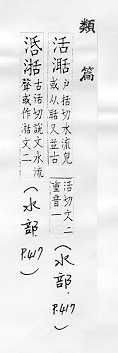 類篇
活 戶括切水流皃
或从聒又並古
活切文二
重音一
(水部. P.417)
古活切說文水流
聲或作活文二
(水部 P.417)